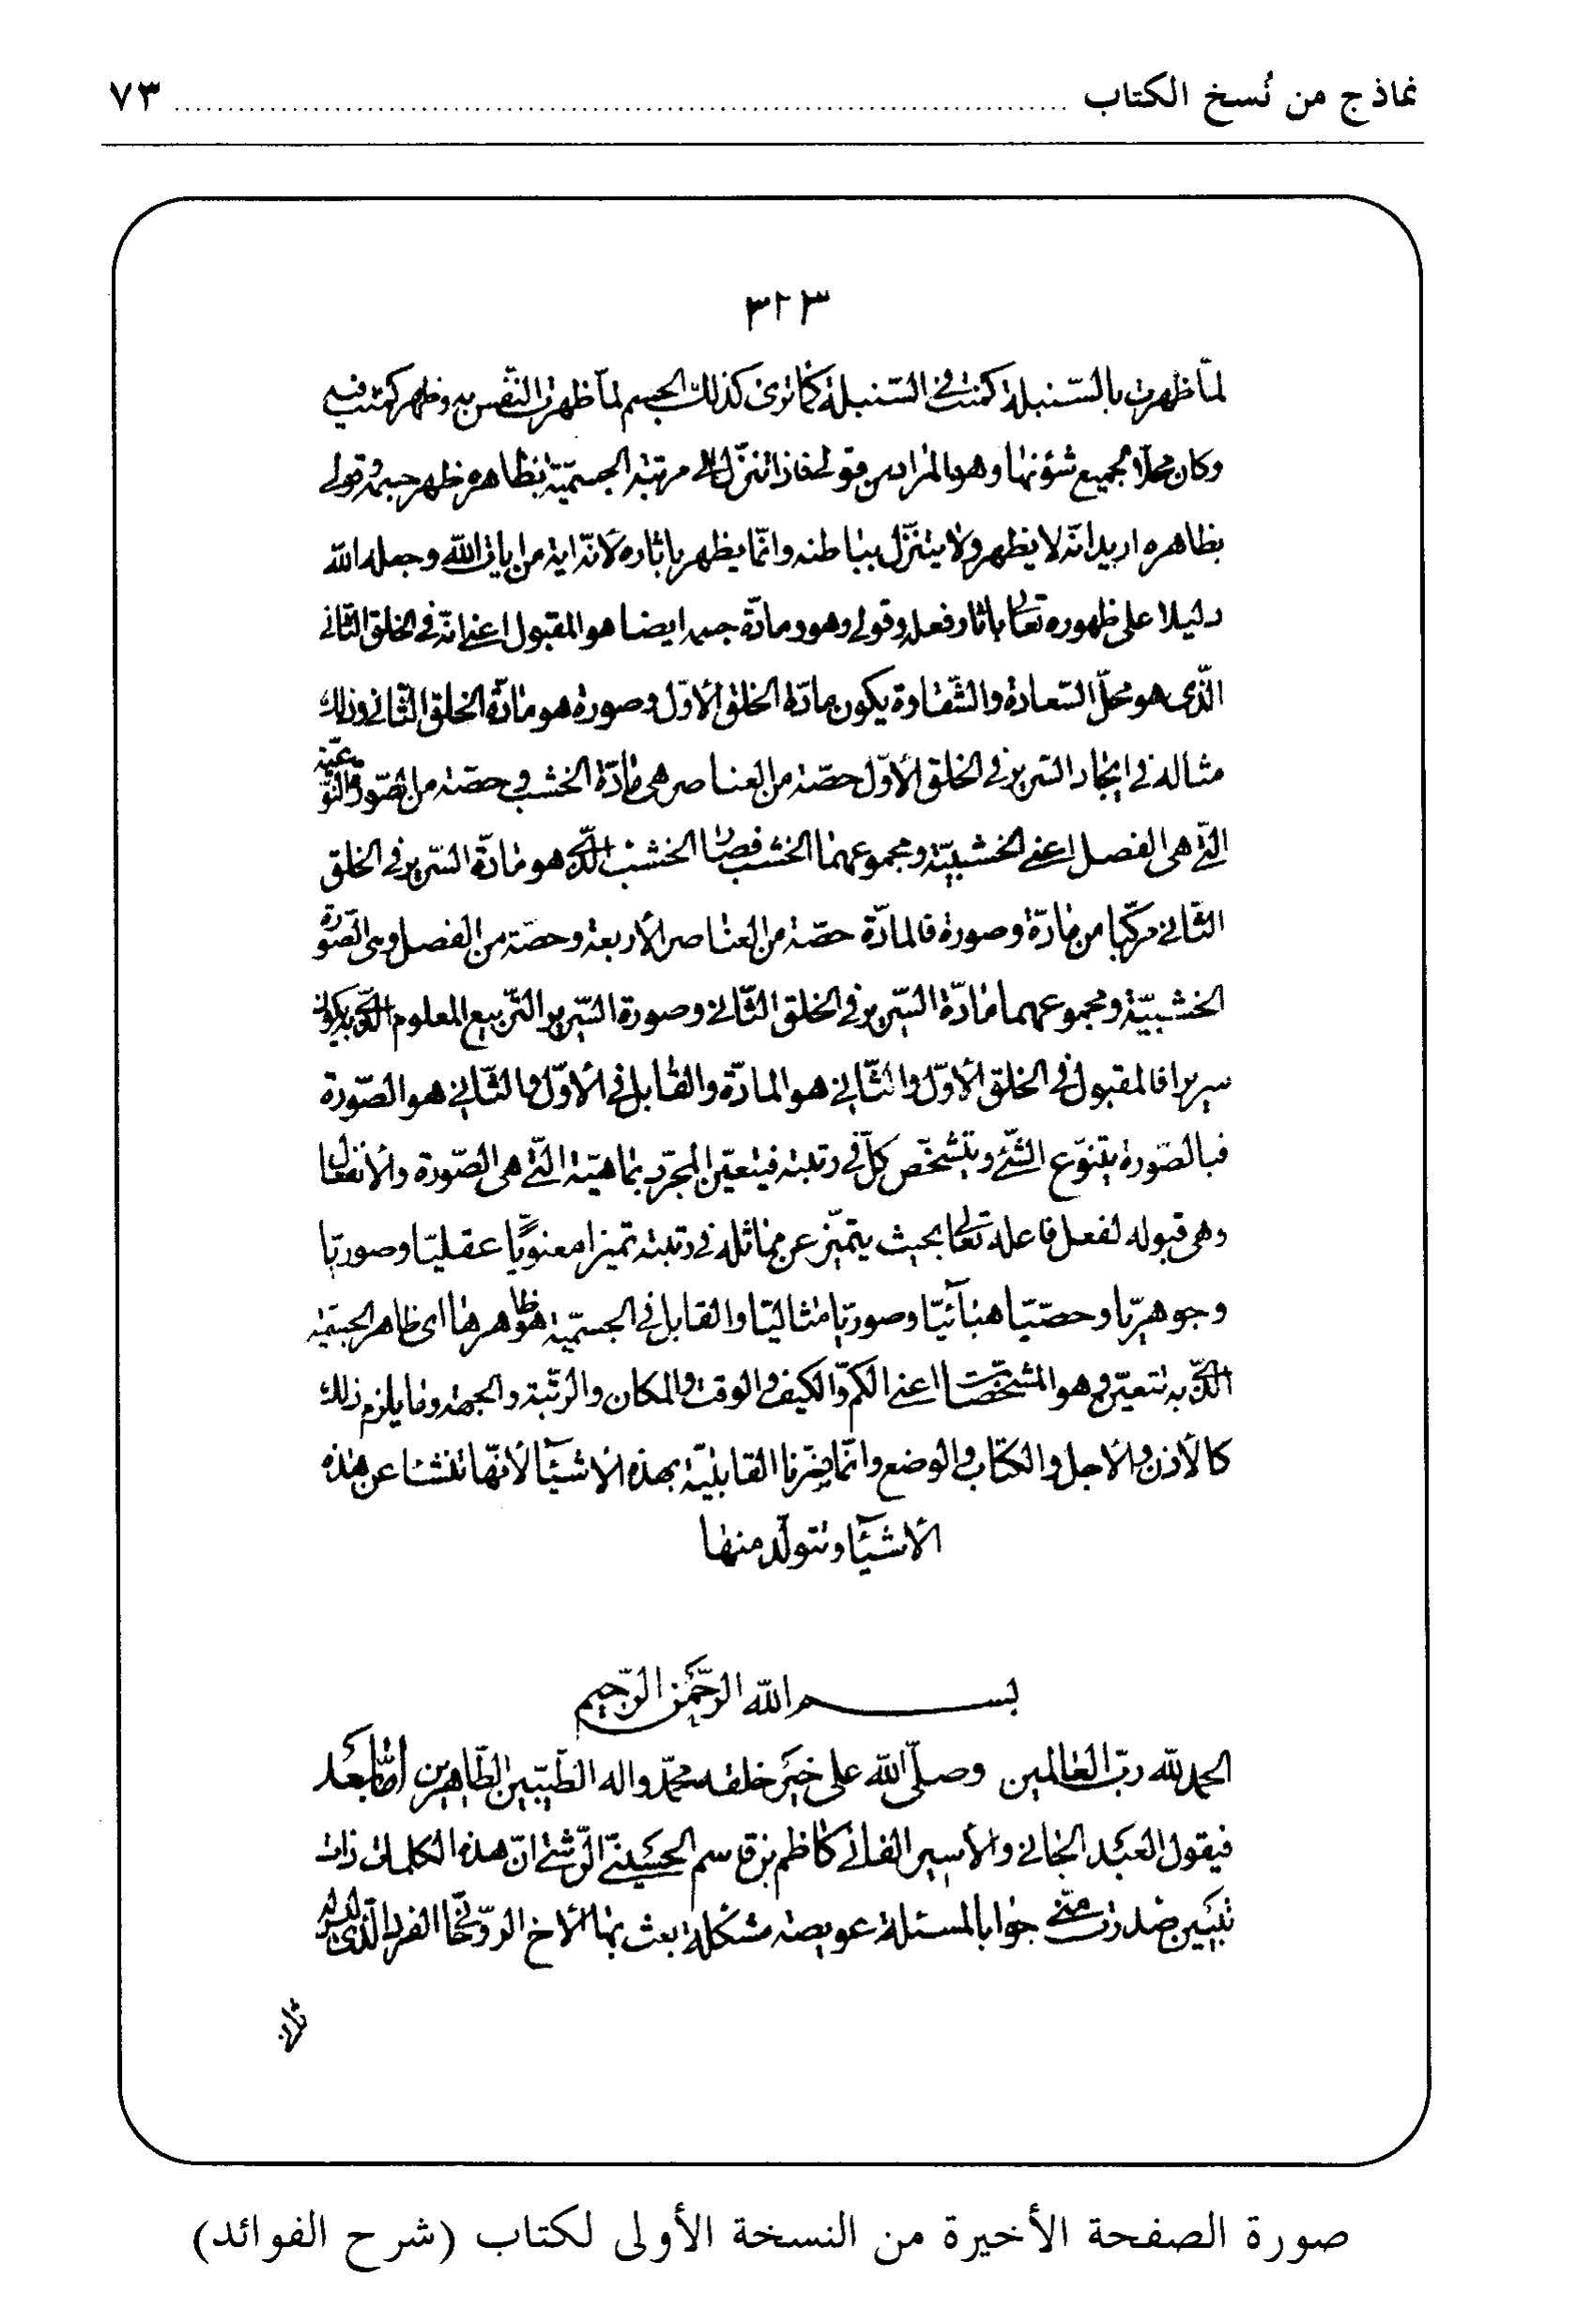 نماذج من نُسخ الكتاب ... ٧٣
٣٢٣
لمّا ظهرت بالسّنبلة كمنت في السّنبلة كما ترى كذلك الجسم لمّا ظهرت النّفس به وظهر كمنت فيه
وكان محلّا لجميع شؤنها وهو المراد من قولي فاذا تنزّل الى مرتبة الجسميّة بظاهره ظهر جسمه وقولي
بظاهره اريد انّه لا يظهر ولا يتنزّل بباطنه وانّما يظهر باثاره لانّه اية من ايات الله وجعله الله
دليلا على ظهوره تعالى باثار فعله وقولي وهو ومادّة جسمه ايضا هو المقبول اعني انّه في الخلق الثّاني
الّذى هو محلّ السّعادة والشّقاوة يكون مادّة الخلق الأوّل وصورة هو مادّة الخلق الثّاني وذلك
مثاله في ايجاد السّرير في الخلق الأوّل حصّة من العناصر هي مادّة الخشب وحصّة من الصّورة النّوعيّة
الّتي هي الفصل اعني الخشبيّة ومجموعهما الخشب فصار الخشب الّذي هو مادّة السّرير في الخلق
الثّاني مركّبا من مادّة وصورة فالمادّة حصّة من العناصر الأربعة وحصّة من الفصل وهي الصّورة
الخشبيّة ومجموعهما مادّة السّرير في الخلق الثّاني وصورة السّرير التّربيع المعلوم الّذي به يكون
سريرا فالمقبول في الخلق الأوّل والثّاني هو المادّة والقابل في الأوّل والثّاني هو الصّورة
فبالصّورة يتنوّع الشّئ ويتشخّص كلّ في رتبته فيتعيّن المجرّد بماهيّته الّتي هي الصّورة والأنفعال
وهي قبوله لفعل فاعله تعالى بحيث يتميّز عن مماثله في رتبته تميزا معنويّا عقليّا وصوريّا
وجوهريّا وحصّيّا هبآئيّا وصوريّا مثاليّا والقابل في الجسميّة هو ظاهرها اى ظاهر الجسميّة
الّذي به تتعيّن وهو المشخّصات اعني الكمّ والكيف والوقت والمكان والرّتبة والجهة وما يلزم ذلك
كالأذن والأجل والكتاب والوضع وانّما فسّرنا القابليّة بهذه الأشيآء لأنّها تنشا عن هذه
الأشيآء وتتولّد منها
بسم الله الرّحمن الرّحيم
الحمد لله ربّ العالمين وصلّى الله على خير خلقه محمّد واله الطّيّبين الطّاهرين امّا بعد
فيقول العبد الجاني والأسير الفاني كاظم بن قاسم الحسيني الرّشتي انّ هذه الكلمات ذات
تبيين صدرت منّي جوابا لمسئلة عويصة مشكلة بعث بها الأخ الرّوحاني الفرد الّذي
صورة الصفحة الأخيرة من النسخة الأولى لكتاب (شرح الفوائد)